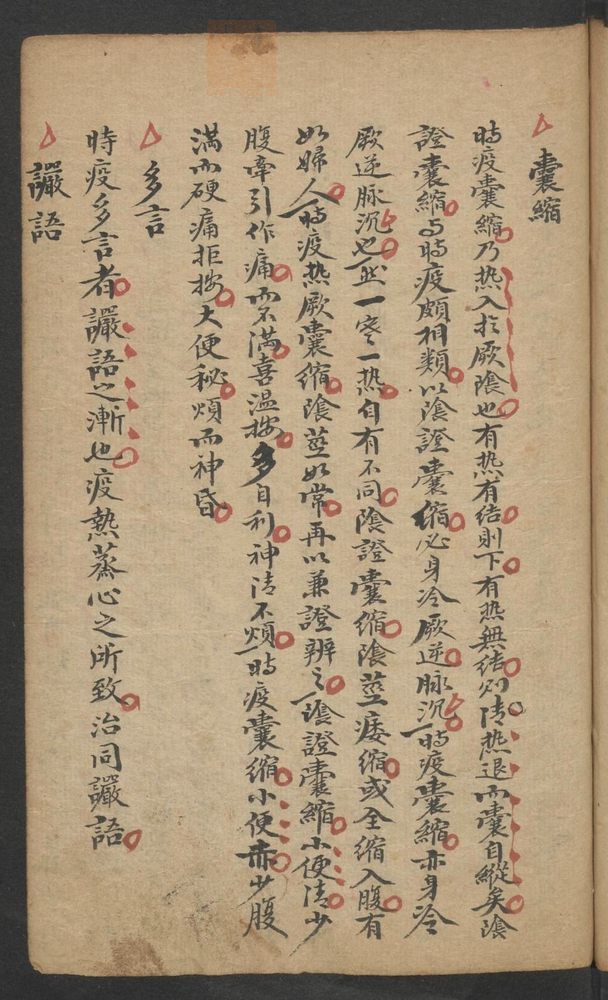 囊縮
時疫囊縮乃热入於厥隂也有热有结則下有热無结則清热退而囊自縱矣隂
證囊縮与時疫頗相類以隂證囊縮必身冷厥逆脉沉時疫囊縮亦身冷
厥逆脉沉也然一寒一热自有不同隂證囊縮隂莖痿縮或全縮入腹有
如婦人時疫热厥囊縮隂莖如常再以兼證辨之隂證囊縮小便清少
腹牽引作痛而不满喜温按多自利神清不煩時疫囊縮小便赤少腹
满而硬痛拒按大便秘煩而神昏
多言
時疫多言者讝語之漸也疫熱蒸心之所致治同讝語
讝語